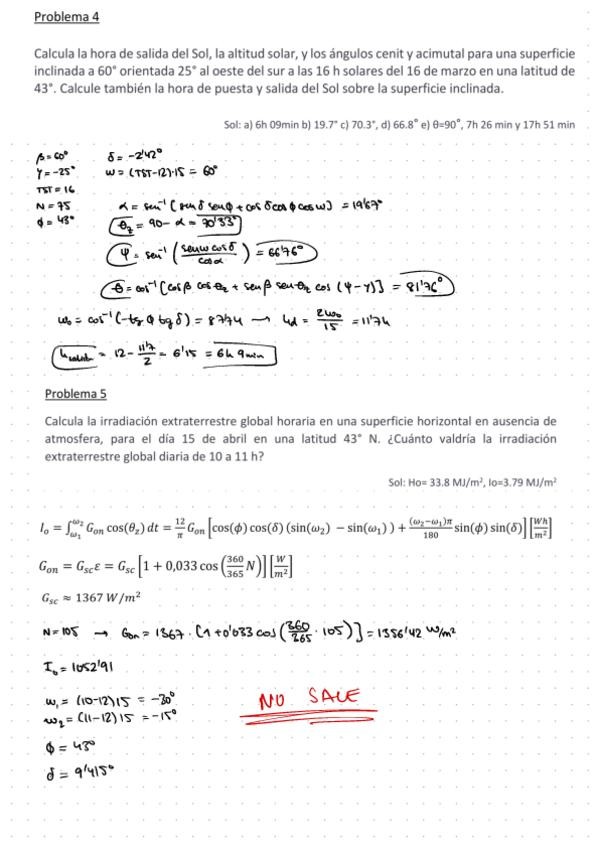 Problema 4
Calcula la hora de salida del Sol, la altitud solar, y los ángulos cenit y acimutal para una superficie
inclinada a 60° orientada 25° al oeste del sur a las 16 h solares del 16 de marzo en una latitud de
43°. Calcule también la hora de puesta y salida del Sol sobre la superficie inclinada.
Sol: a) 6h 09min b) 19.7° c) 70.3°, d) 66.8° e) θ=90°, 7h 26 min y 17h 51 min
β = 60° δ = -2'42°
γ = -25° ω = (TST-12)·15 = 60°
TST = 16
N = 75 α = sen⁻¹ (sen δ sen ϕ + cos δ cos ϕ cos ω) = 19'67°
ϕ = 43° θz = 90 - α = 70'33°
ψ = sen⁻¹ (sen ω cos δ / cos α) = 66'76°
θ = cos⁻¹ [cos β cos θz + sen β sen θz cos (ψ-γ)] = 81'76°
ω₀ = cos⁻¹ (-tg ϕ tg δ) = 87'74 → hd = 2ω₀/15 = 11'74
= 12 - 11'7/2 = 6'15 = 6h 9min
Problema 5
Calcula la irradiación extraterrestre global horaria en una superficie horizontal en ausencia de
atmosfera, para el día 15 de abril en una latitud 43° N. ¿Cuánto valdría la irradiación
extraterrestre global diaria de 10 a 11 h?
Sol: Ho= 33.8 MJ/m², Io=3.79 MJ/m²
I₀ = ∫_{ω₁}^{ω₂} G_on cos(θ_z) dt = 12/π G_on [cos(ϕ) cos(δ) (sin(ω₂) − sin(ω₁)) + (ω₂−ω₁)π/180 sin(ϕ) sin(δ)] [Wh/m²]
G_on = G_sc ε = G_sc [1 + 0,033 cos (360/365 N)] [W/m²]
G_sc ≈ 1367 W/m²
N = 105 → Gon = 1367 · [1 + 0'033 cos (360/365 · 105)] = 1356'42 W/m²
I₀ = 1052'91
ω₁ = (10-12)15 = -30°
NO SALE
ω₂ = (11-12)15 = -15°
ϕ = 43°
δ = 9'415°